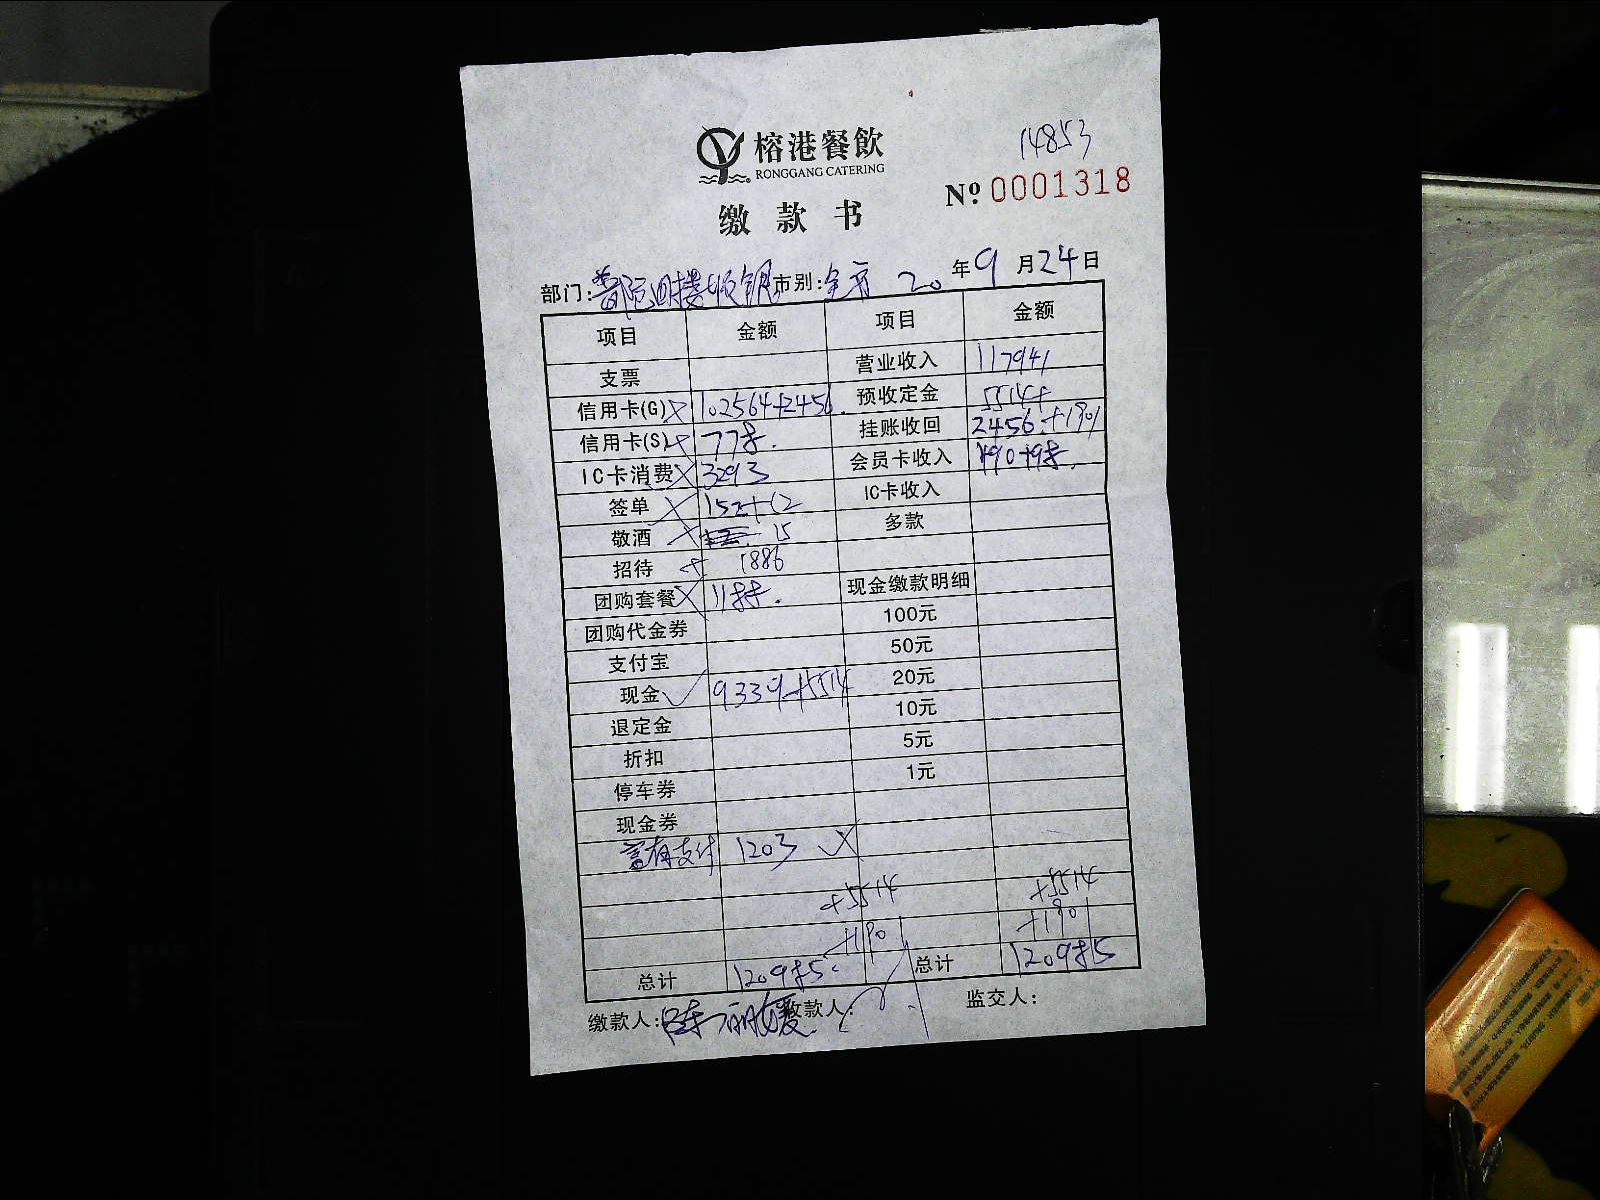 榕港餐飲
RONGGANG CATERING
14853
缴款书
Nº 0001318
部门: 市别:全市 20 年9月24日
项目 金额 项目 金额
支票 营业收入 117941
信用卡(G) 102564+2456 预收定金 5514+
信用卡(S) 778. 挂账收回 2456.+190
IC卡消费 3293 会员卡收入 490+98.
签单 152+12 IC卡收入
敬酒 15 多款
招待 1886
团购套餐 1188. 现金缴款明细
团购代金券 100元
支付宝 50元
现金 9339+5514 20元
退定金 10元
折扣 5元
停车券 1元
现金券
支付 1203
+5514 +5514
+190 +190
总计 120985. 总计 120985
缴款人:陈丽媛 收款人: 监交人: